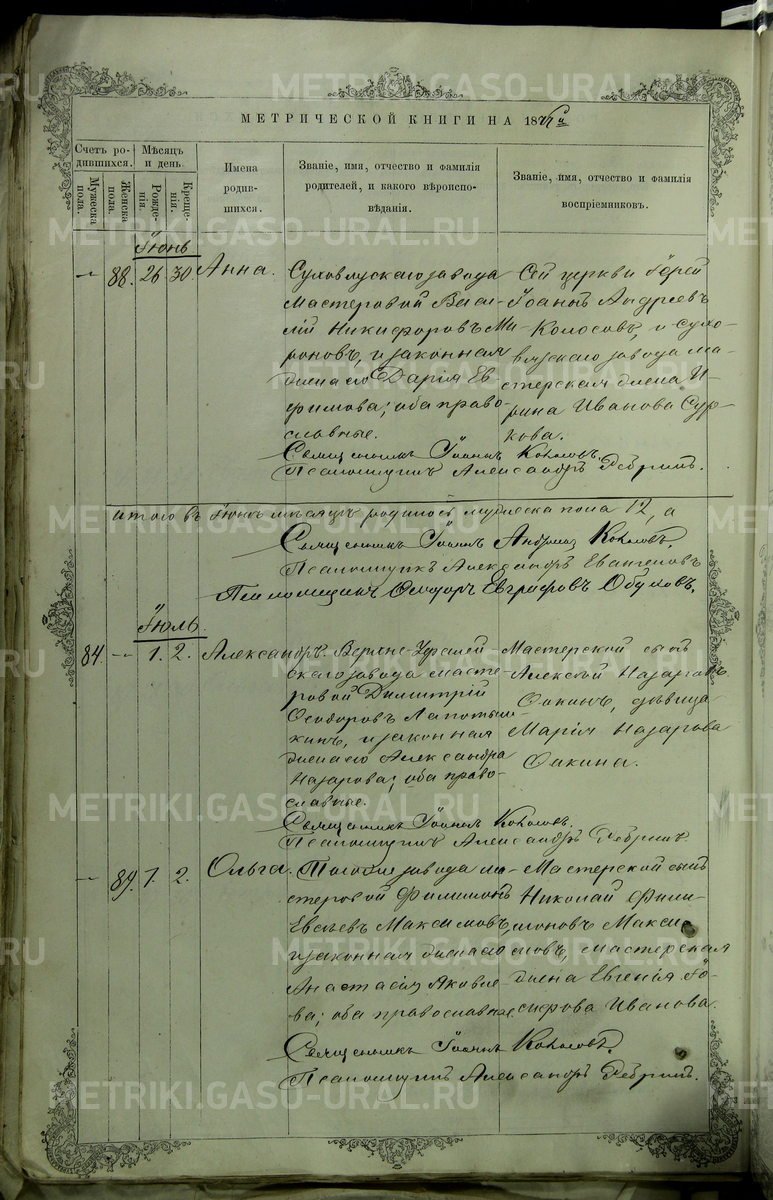 METRIKI.GASO-URAL.RU
МЕТРИЧЕСКОЙ КНИГИ НА 18
Счетъ родившихся.
Мужеска пола.
Женска пола.
Мѣсяцъ и день.
Рожденія.
Крещенія.
Имена родившихся.
Званіе, имя, отчество и фамилія
родителей, и какого вѣроиспо-
вѣданія.
Званіе, имя, отчество и фамилія
воспріемниковъ.
Іюнь
88. 26. 30. Анна.
завода
Мастеровой Васи-
лій Никифоровъ Ми-
роновъ, и законная
жена его Дарія Ев-
фимова; оба право-
славные.
Сей церкви Іерей
Іоаннъ Андреевъ
Колосовъ, и Сухо-
вязскаго завода ма-
стерская жена И-
рина Иванова Сур-
кова.
Священникъ Іоаннъ Колосовъ.
Псаломщикъ Александръ Ребринъ.
итого въ Іюнѣ мѣсяцѣ родилось мужеска пола 12, а
Священникъ Іоаннъ Андреевъ Колосовъ.
Псаломщикъ Александръ
Псаломщикъ Ѳеодоръ Евграфовъ
Іюль.
84. — 1. 2. Александръ.
Верхне-Уфалей-
скаго завода масте-
ровой Димитрій
Ѳеодоровъ
и законная
жена его Александра
Назарова; оба право-
славные.
Мастерской сынъ
Алексѣй Назаровъ
дѣвица
Марія Назарова
Священникъ Іоаннъ Колосовъ.
Псаломщикъ Александръ Ребринъ
— 89. 1. 2. Ольга.
Того же завода ма-
стеровой Филимонъ
Евсѣевъ Максимовъ,
и законная жена его
Анастасія Яковле-
ва; оба православные.
Мастерской сынъ
Николай Фили-
моновъ Макси-
мовъ, мастерская
жена Евгенія Іо-
сифова Иванова.
Священникъ Іоаннъ Колосовъ.
Псаломщикъ Александръ Ребринъ.